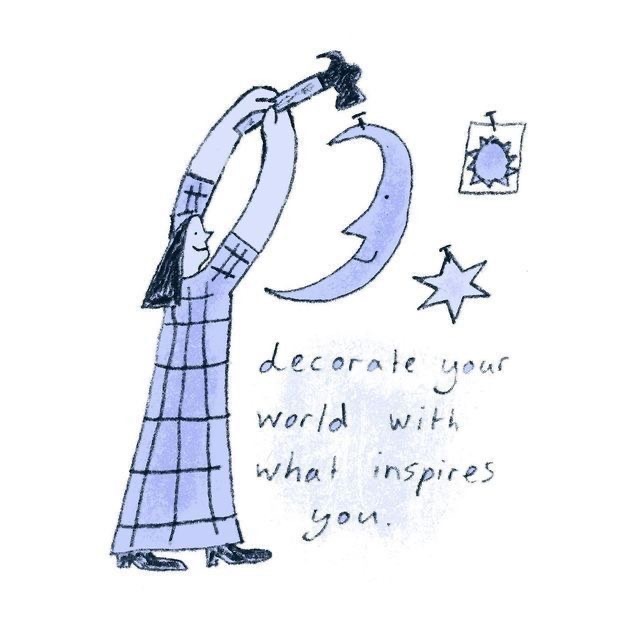 decorate your
world with
what inspires
you.